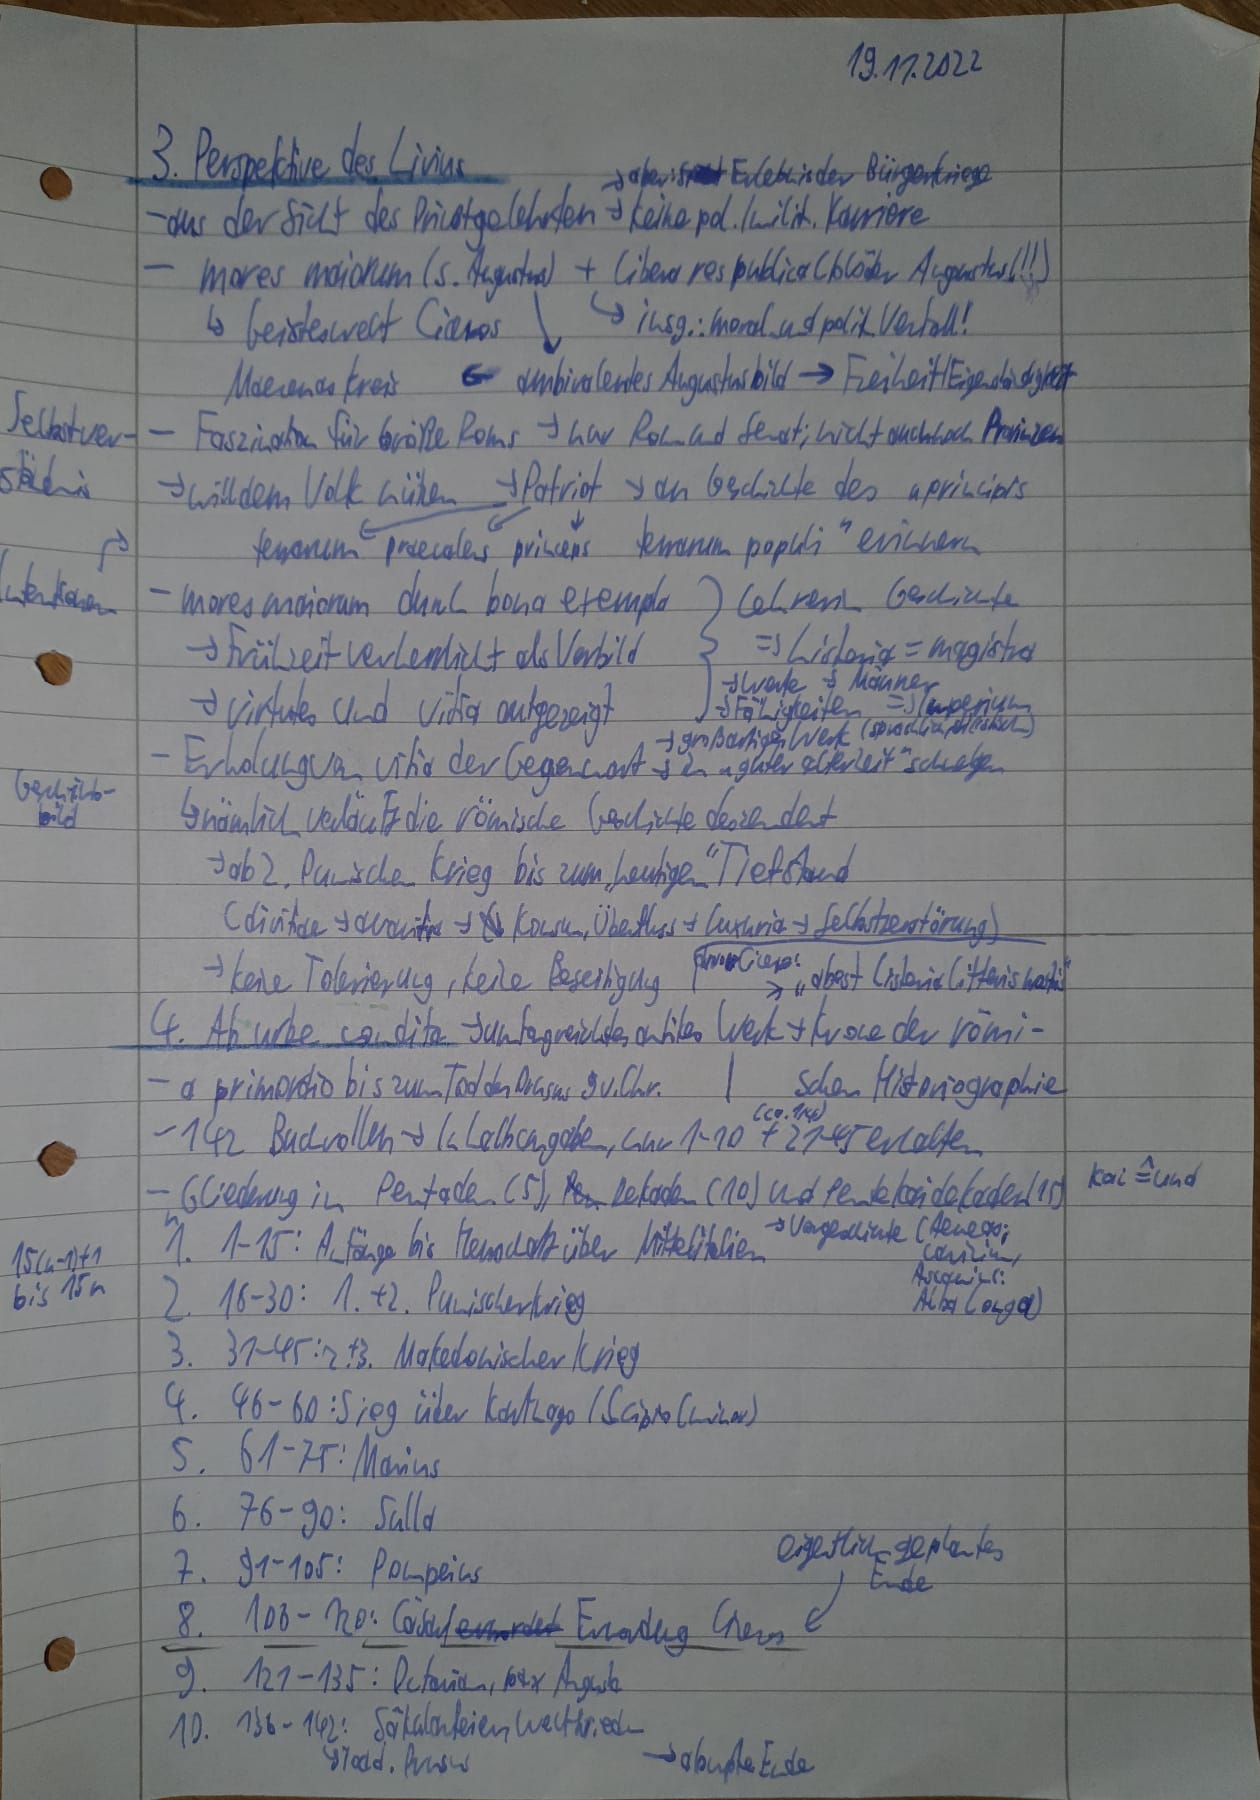 19.11.2022
3. Perspektive des Livius
→ aber: Erlebnis der Bürgerkriege
- aus der Sicht des Privatgelehrten → keine pol./milit. Karriere
- mores maiorum (s. Augustus) + libera res publica (blöder Augustus!!!)
↳ Geisteswelt Ciceros ↳ insg.: moral. und polit. Verfall!
Maecenaskreis ← ambivalentes Augustusbild → Freiheit/Eigenständigkeit
Selbstver-
ständnis
- Faszination für Größe Roms → nur Rom und Senat; nicht auch noch Provinzen
→ will dem Volk nützen → Patriot → an Geschichte des „principis
terrarum praecellens princeps terrarum populi" erinnern
Intentionen
- mores maiorum durch bona exempla } Lehren in Geschichte
→ Frühzeit verherrlicht als Vorbild => historia = magistra
→ Werte + Männer
→ virtutes und vitia aufgezeigt → Fähigkeiten => Imperium
→ großartiges Werk
- Erholung von vitia der Gegenwart → in „guter alter Zeit" schwelgen
Geschichts-
bild
↳ nämlich verläuft die römische Geschichte deszendent
→ ab 2. Punischen Krieg bis zum „heutigen" Tiefstand
(divitiae → avaritia → Konsum, Überfluss → luxuria → Selbstzerstörung)
→ keine Tolerierung, keine Beseitigung
Cicero:
→ „abest historia litteris nostris"
4. Ab urbe condita → umfangreichstes antikes Werk → Krone der römi-
schen Historiographie
- a primordio bis zum Tod des Drusus 9 v. Chr.
- 142 Buchrollen → Inhaltsangaben, nur 1-10 + 21-45 erhalten
(ca. 1/4)
- Gliederung in Pentaden (5), Dekaden (10) und Pentekaidekaden (15)
kai ≙ und
n
15(n-1)+1
bis 15n
1. 1-15: Anfänge bis Herrschaft über Mittelitalien → Vorgeschichte (Aeneas:
Lavinium,
Ascanius:
Alba Longa)
2. 16-30: 1. + 2. Punischer Krieg
3. 31-45: 2. + 3. Makedonischer Krieg
4. 46-60: Sieg über Karthago (Scipio minor)
5. 61-75: Marius
6. 76-90: Sulla
7. 91-105: Pompeius
eigentlich geplantes
Ende
8. 106-120: Cäsar Ermordung Ciceros
9. 121-135: Octavian, pax Augusta
10. 136-142: Säkularfeier, Weltfrieden
↳ Tod d. Drusus → abruptes Ende